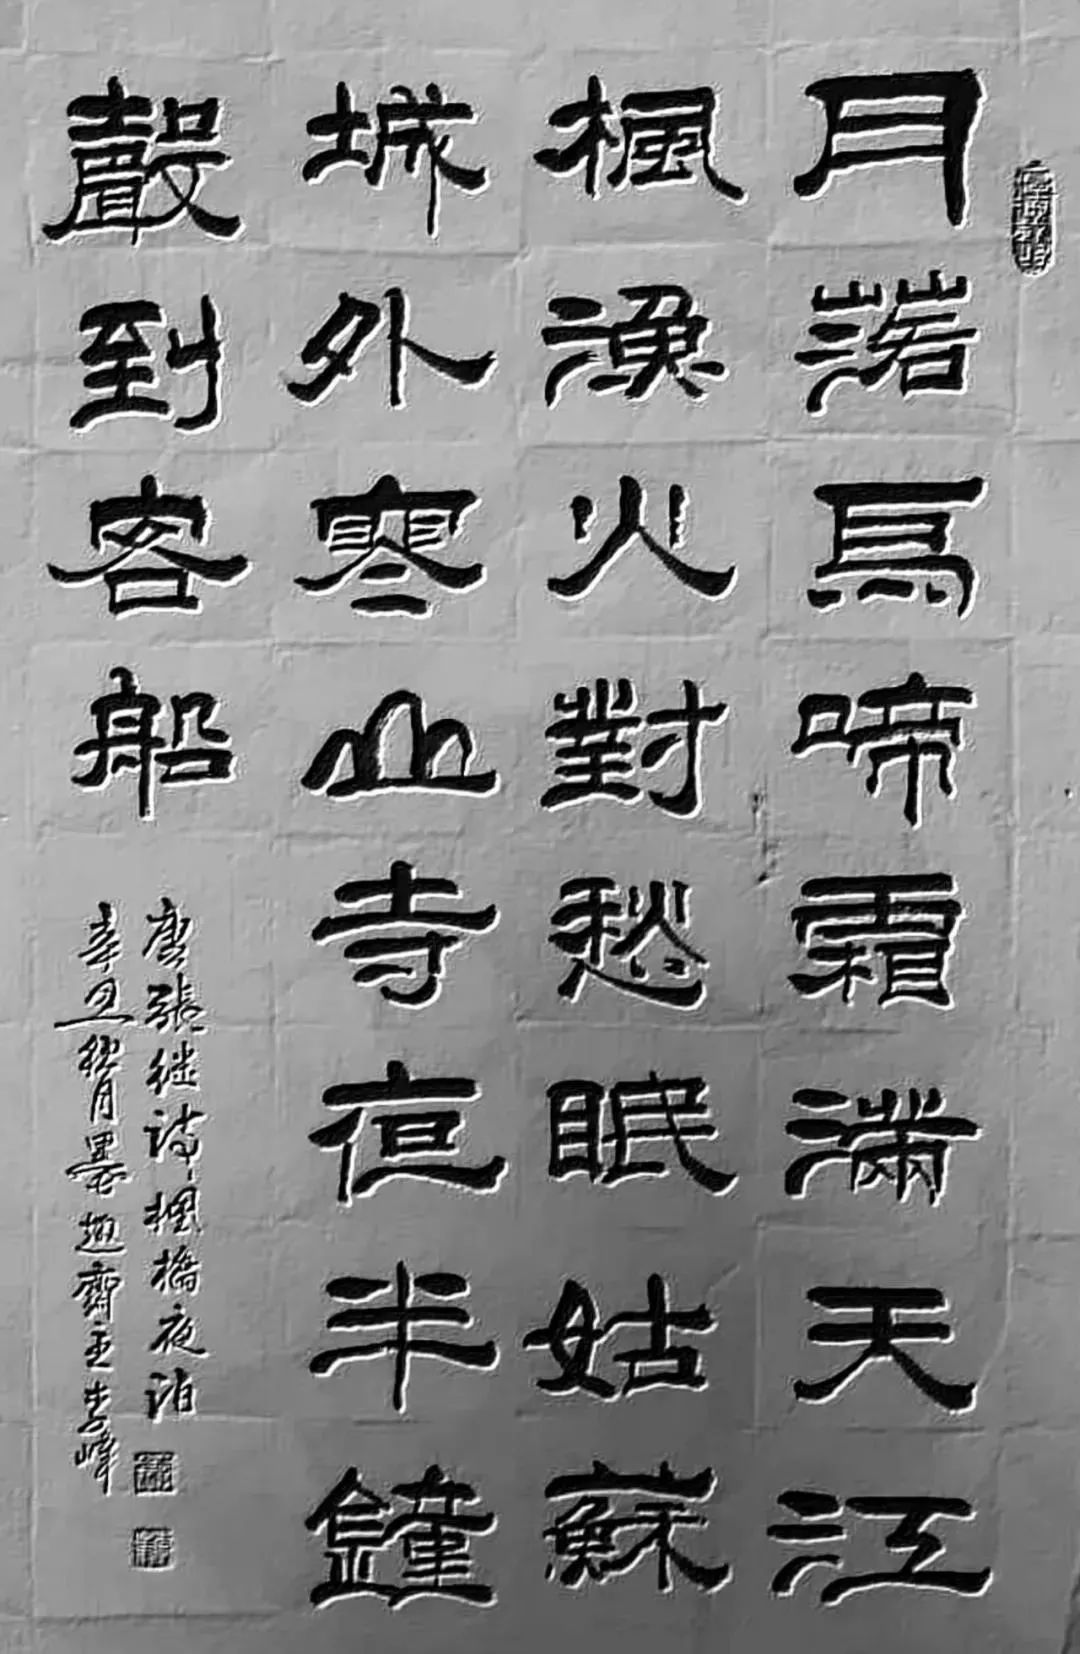 月落烏啼霜滿天江
楓漁火對愁眠姑蘇
城外寒山寺夜半鐘
聲到客船
唐張继詩楓橋夜泊
辛丑秋月墨趣齋主步峰